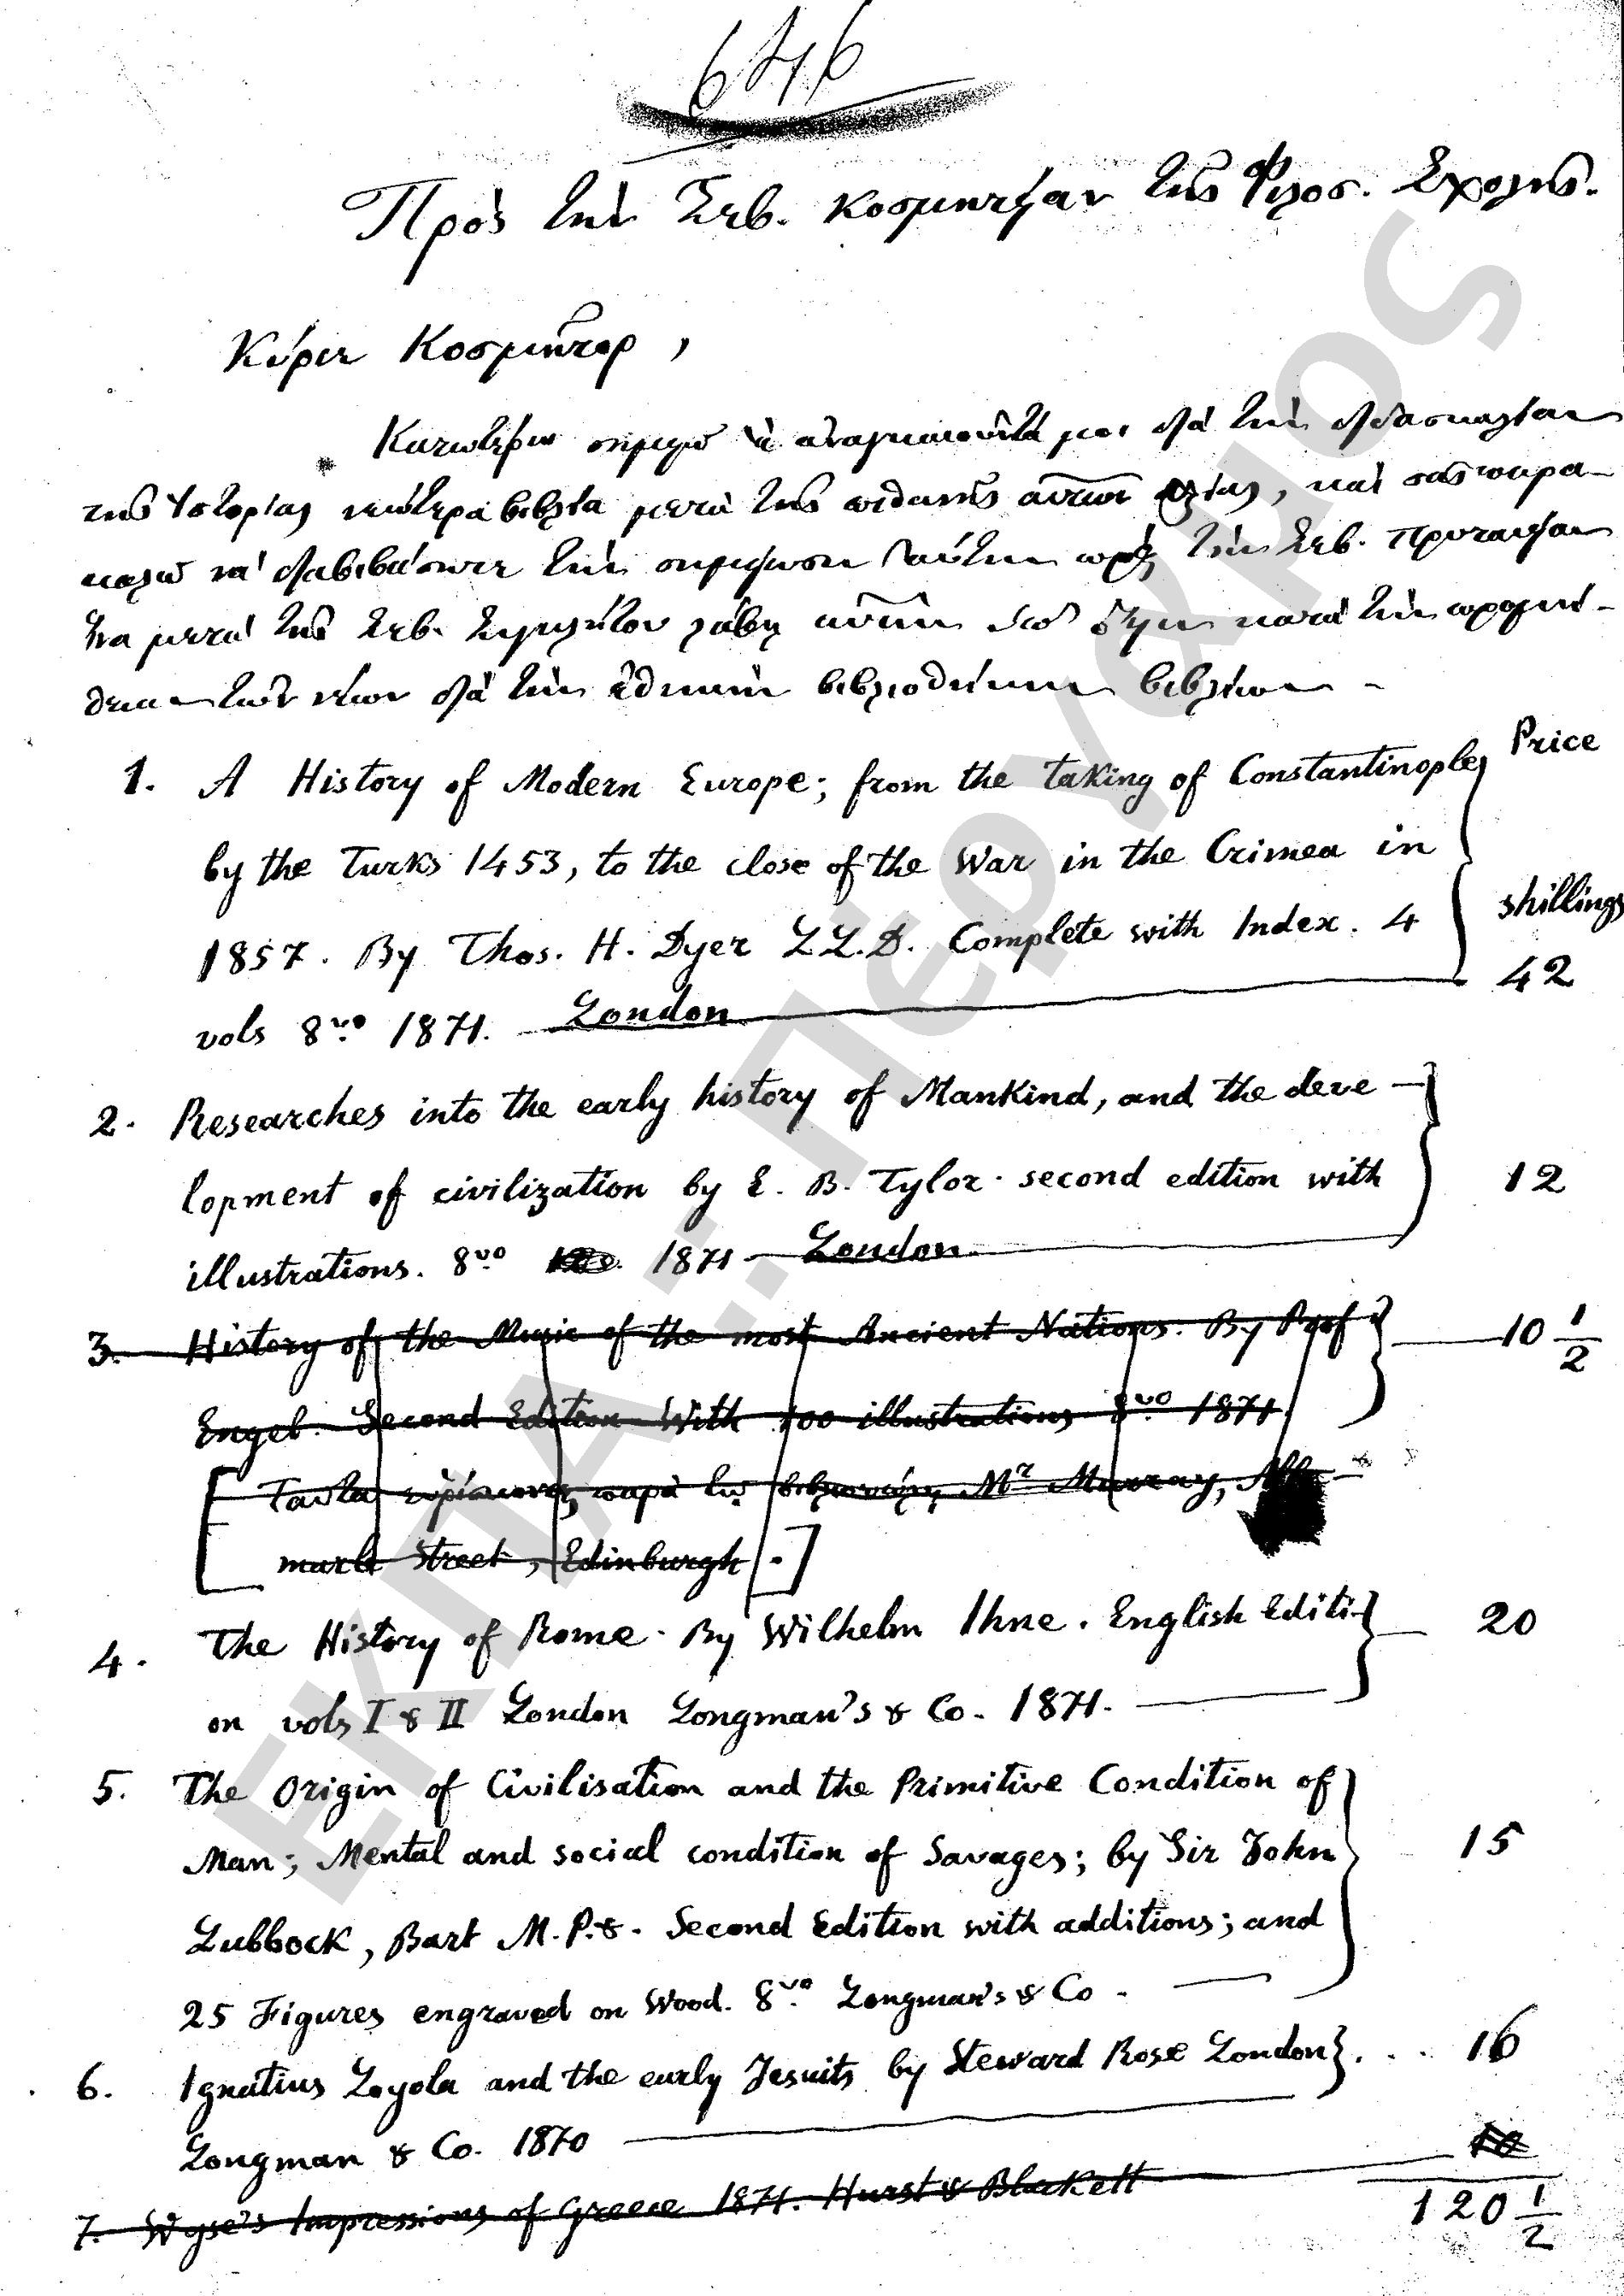 646
Πρὸς τὴν Σεβ. Κοσμητείαν τῆς Φιλοσ. Σχολῆς.
Κύριε Κοσμῆτορ,
Κατωτέρω σημειῶ τὰ ἀναγκαιοῦντά μοι διὰ τὴν διδασκαλίαν
τῆς Ἱστορίας νεώτερα βιβλία μετὰ τῆς πιθανῆς αὐτῶν ἀξίας, καὶ σᾶς παρα-
καλῶ νὰ διαβιβάσητε τὴν σημείωσιν ταύτην πρὸς τὴν Σεβ. Πρυτανείαν
ἵνα μετὰ τῆς Σεβ. Συγκλήτου λάβῃ αὐτὴν ὑπ' ὄψιν κατὰ τὴν προμή-
θειαν τῶν νέων διὰ τὴν ἐθνικὴν βιβλιοθήκην βιβλίων -
Price
1. A History of Modern Europe; from the taking of Constantinople,
by the Turks 1453, to the close of the War in the Crimea in
shillings
1857. By Thos. H. Dyer L.L.D. Complete with Index. 4
42
vols 8vo 1871. London
2. Researches into the early history of Mankind, and the deve-
lopment of civilization by E. B. Tylor. second edition with 12
illustrations. 8vo 1871 London.
3. History of the Music of the most Ancient Nations. By Prof 10 1/2
Engel. Second Edition With 100 illustrations 8vo 1871.
[Ταῦτα εὑρίσκονται παρὰ τῷ βιβλιοπώλῃ Mr Murray, Albe-
marle Street, Edinburgh.]
4. The History of Rome. By Wilhelm Ihne. English Editi- 20
on vols I & II London Longman's & Co. 1871.
5. The Origin of Civilisation and the Primitive Condition of
Man; Mental and social condition of Savages; by Sir John 15
Lubbock, Bart M.P.&. Second Edition with additions; and
25 Figures engraved on Wood. 8vo Longman's & Co.
6. Ignatius Loyola and the early Jesuits by Steward Rose London}... 16
Longman & Co. 1870
7. Wyse's Impressions of Greece 1871. Hurst & Blackett
120 1/2
ΕΚΠΑ.: Πέργαμος